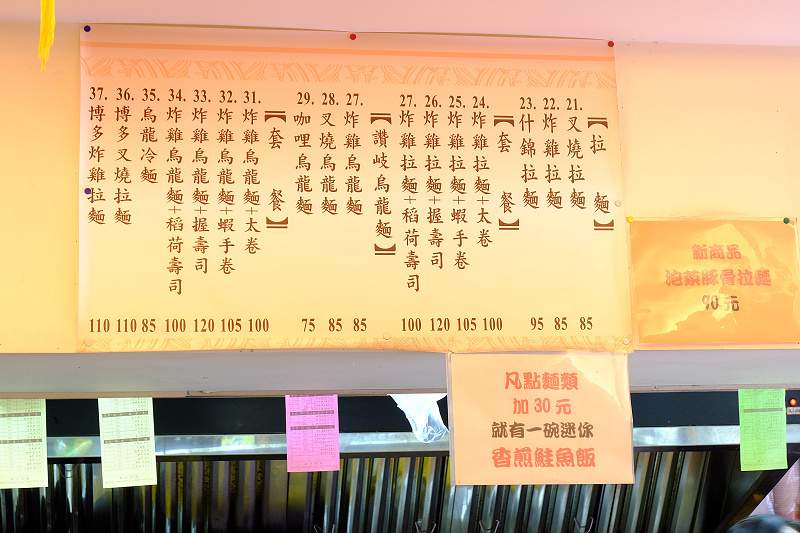 【拉麵】
21. 叉燒拉麵 85
22. 炸雞拉麵 85
23. 什錦拉麵 95
【套餐】
24. 炸雞拉麵+太卷 100
25. 炸雞拉麵+蝦手卷 105
26. 炸雞拉麵+握壽司 120
27. 炸雞拉麵+稻荷壽司 100
【讚岐烏龍麵】
27. 炸雞烏龍麵 85
28. 叉燒烏龍麵 85
29. 咖哩烏龍麵 75
【套餐】
31. 炸雞烏龍麵+太卷 100
32. 炸雞烏龍麵+蝦手卷 105
33. 炸雞烏龍麵+握壽司 120
34. 炸雞烏龍麵+稻荷壽司 100
35. 烏龍冷麵 85
36. 博多叉燒拉麵 110
37. 博多炸雞拉麵 110
新商品
泡菜豚骨拉麵
90元
凡點麵類
加30元
就有一碗迷你
香煎鮭魚飯